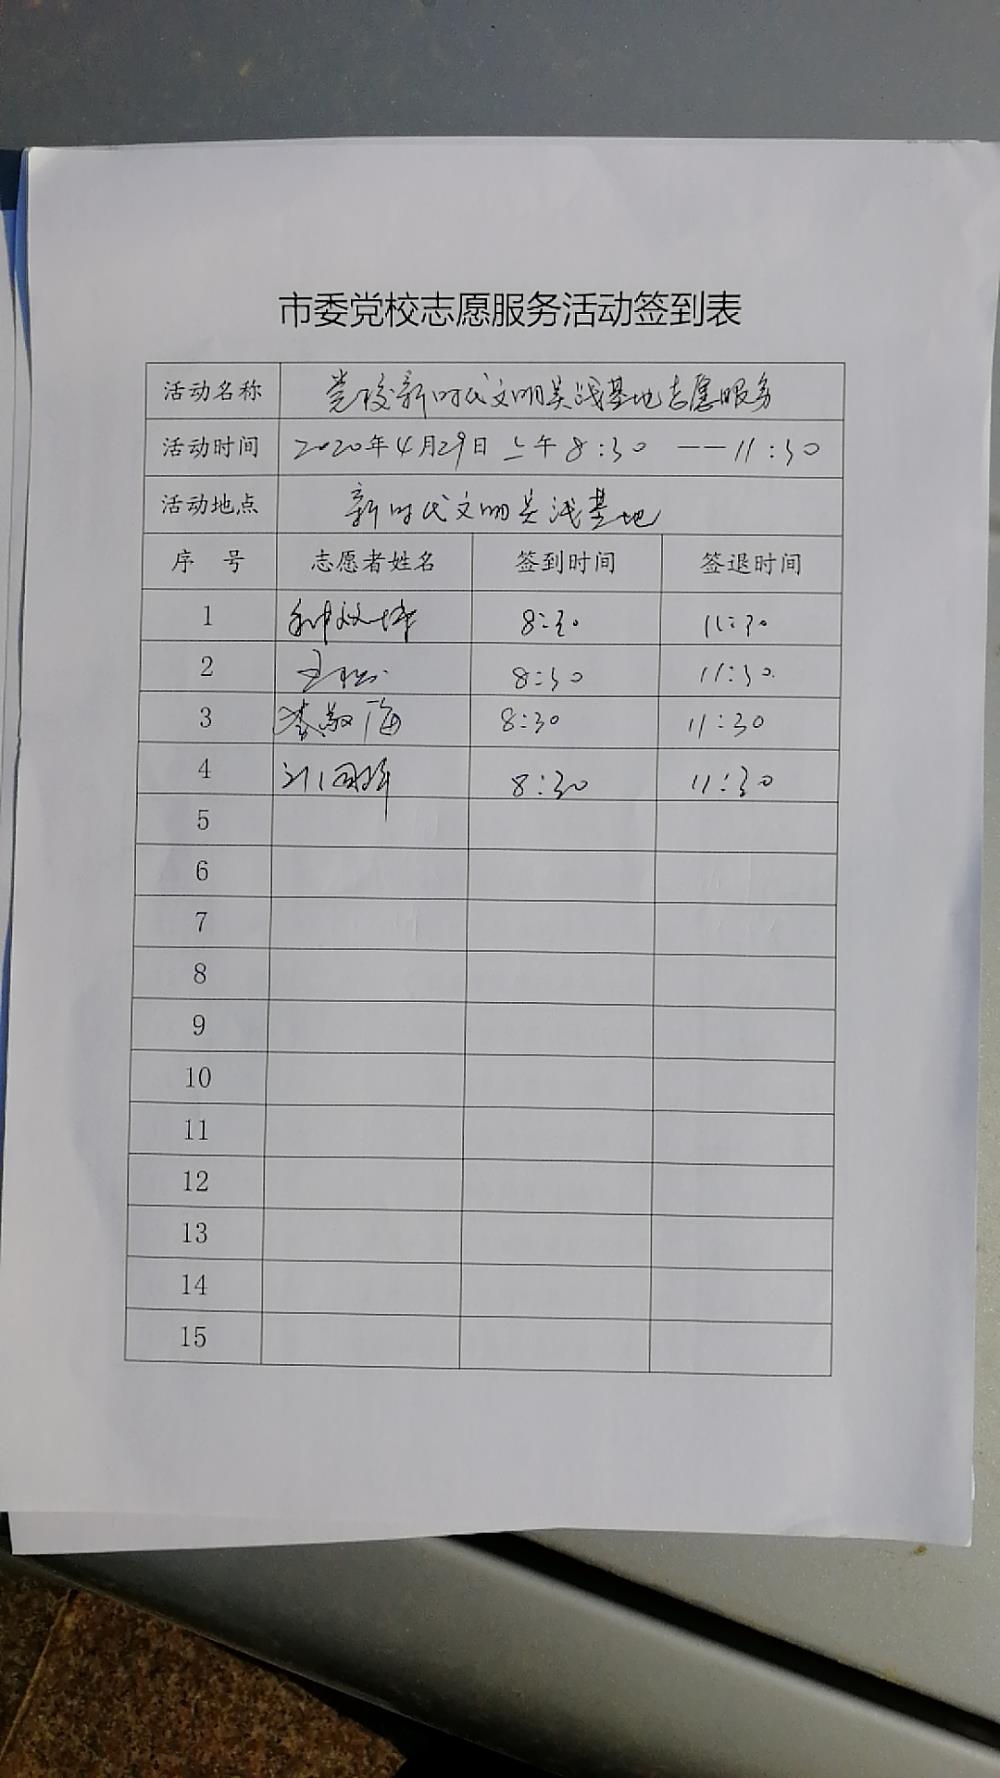 市委党校志愿服务活动签到表
活动名称 党校新时代文明实践基地志愿服务
活动时间 2020年4月29日上午8:30 ——11:30
活动地点 新时代文明实践基地
序 号 志愿者姓名 签到时间 签退时间
1 8:30 11:30
2 8:30 11:30
3 李敬海 8:30 11:30
4 8:30 11:30
5
6
7
8
9
10
11
12
13
14
15